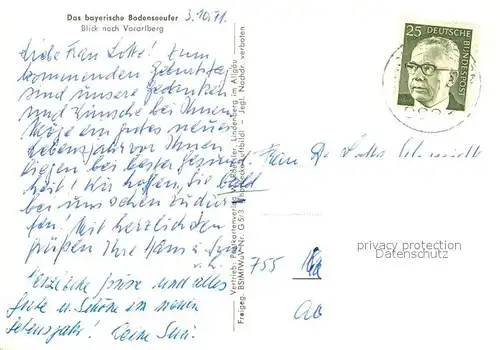 Das bayerische Bodenseeufer
Blick nach Vorarlberg
3.10.71.
Liebe Frau Lotte! Zum
kommenden Geburtstag
sind unsere Gedanken
und Wünsche bei Ihnen.
Möge ein gutes neues
Lebensjahr vor Ihnen
liegen bei bester Gesund
heit! Wir hoffen, Sie bald
bei uns sehen zu dür
fen! Mit herzlichen
Grüßen Ihre Hans u.
Herzliche Grüße und alles
Gute u. Schöne im neuen
Lebensjahr! Deine
Vertrieb: Postkartenverlag Lindenberg im Allgäu
Freigeg. BStMfWuV Nr. G 5/3 Luftbild! – Jegl. Nachdr. verboten
25
DEUTSCHE
BUNDESPOST
Frau Dr. Lotte Schmidt
privacy protection
Datenschutz
755